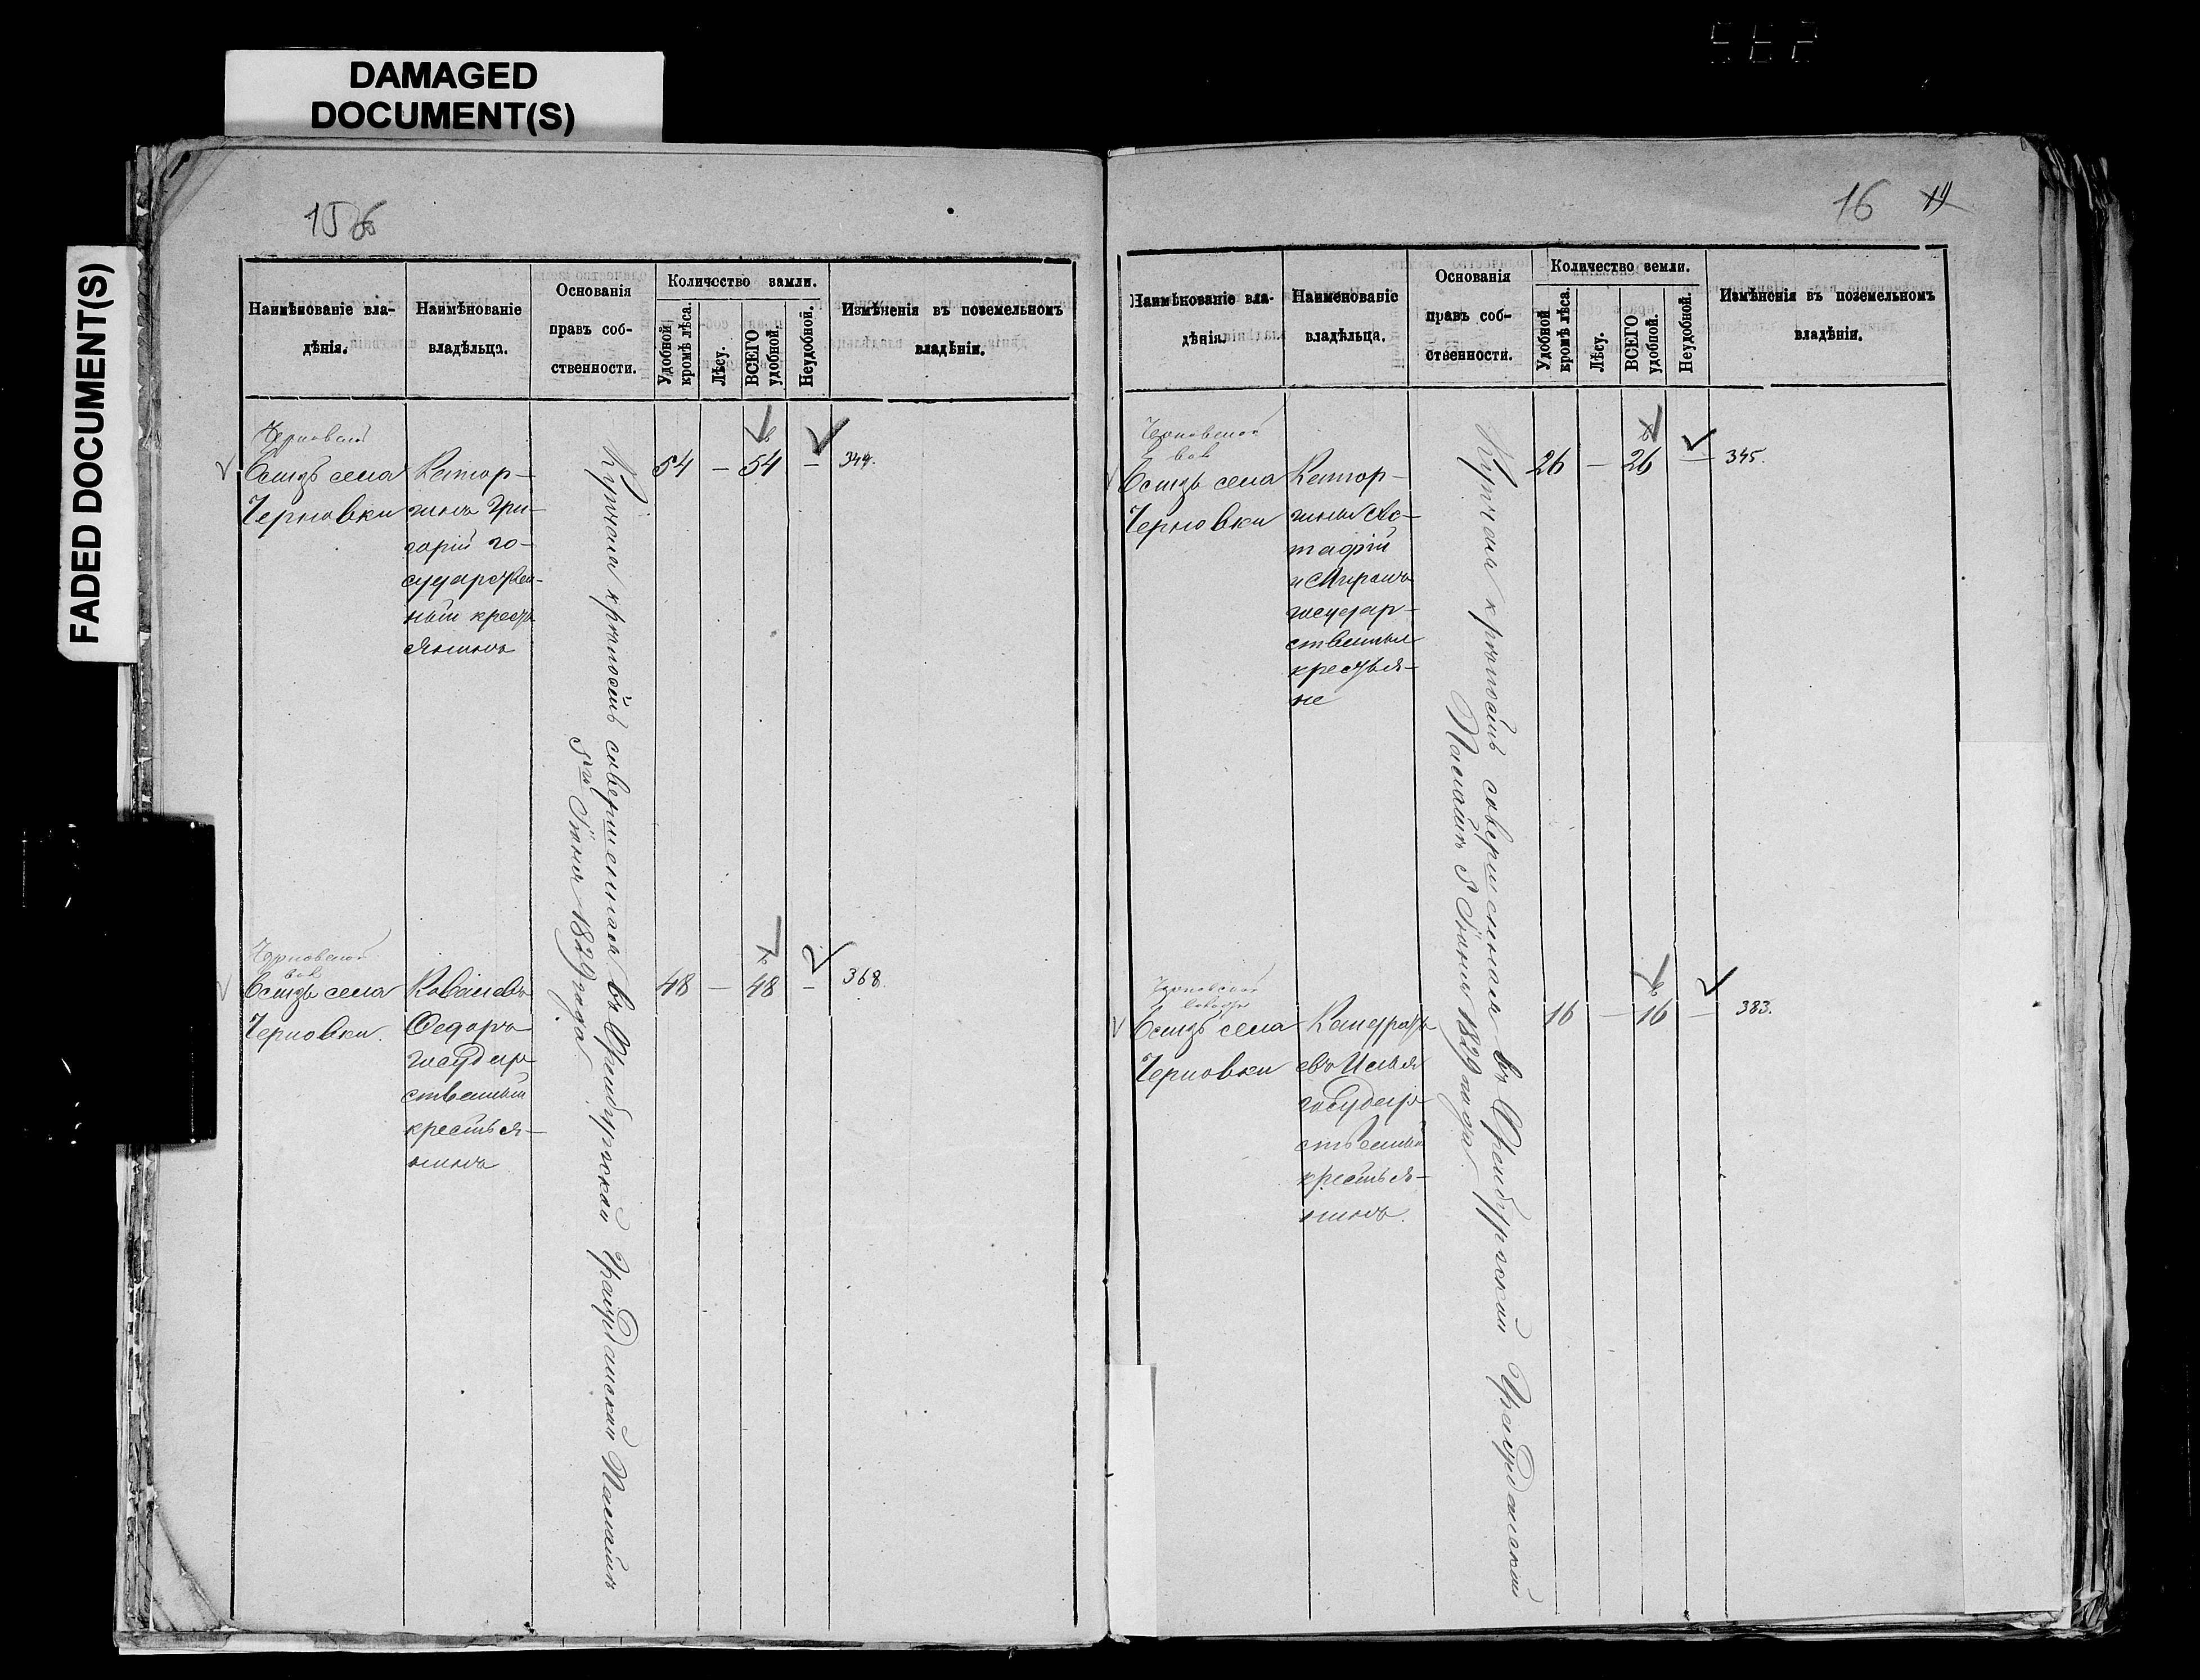 DAMAGED
DOCUMENT(S)
FADED DOCUMENT(S)
16
Наимѣнованіе вла-
дѣнія.
Наимѣнованіе
владѣльца.
Основанія
правъ соб-
ственности.
Количество земли.
Удобной
кромѣ лѣса.
Лѣсу.
ВСЕГО
удобной.
Неудобной.
Измѣненія въ поземельномъ
владѣніи.
Черновской
близь села
Черновки
гинъ Гри-
горій го-
сударствен-
ный кресть
янинъ
Купчая крѣпость совершенная въ Оренбургской Гражданской Палатѣ
5го Іюня 1829 года
54 — 54 — 344.
Черновской
вол
близь села
Черновки.
Ковалевъ
Федоръ
государ
ственный
крестья-
нинъ
48 — 48 — 368
Наимѣнованіе вла-
дѣнія.
Наименованіе
владѣльца.
Основанія
правъ соб-
ственности.
Количество земли.
Удобной
кромѣ лѣса.
Лѣсу.
ВСЕГО
удобной.
Неудобной.
Измѣненія въ поземельномъ
владѣніи.
Черновской
вол
близь села
Черновки
гины Ас-
тафій
и Миронъ
государ-
ственныя
крестья-
не
Купчая крѣпость совершенная въ Оренбургской Гражданской
Палатѣ 5 Іюня 1829 года
26 — 26 — 345.
Черновской
близь села
Черновки
Кандрать
евъ Илья
государ
ственный
крестья-
нинъ.
16 — 16 — 383.